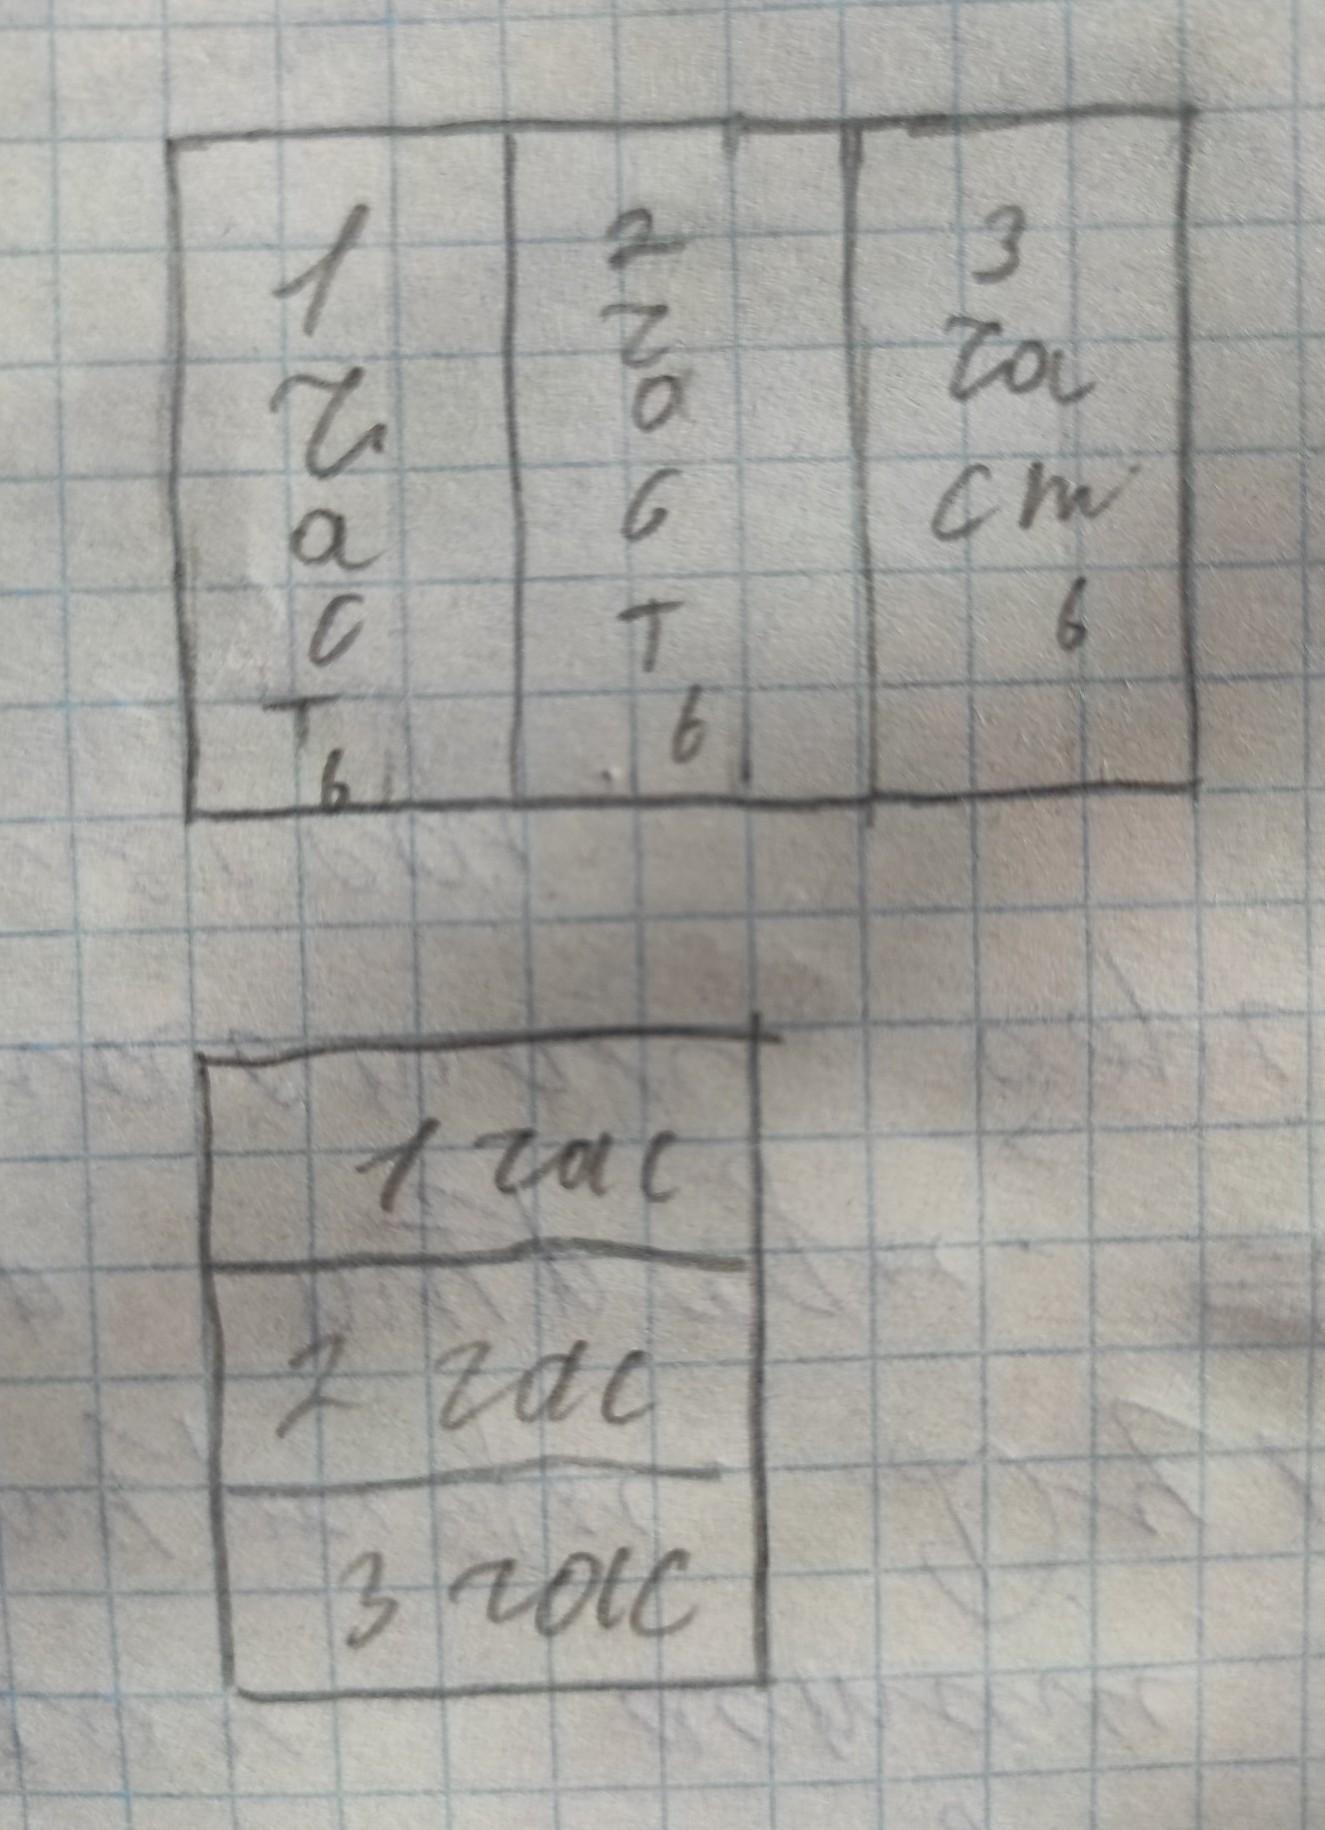 1
ч
а
с
т
ь
2
ч
а
с
т
ь
3
ча
ст
ь
1 час
2 час
3 час